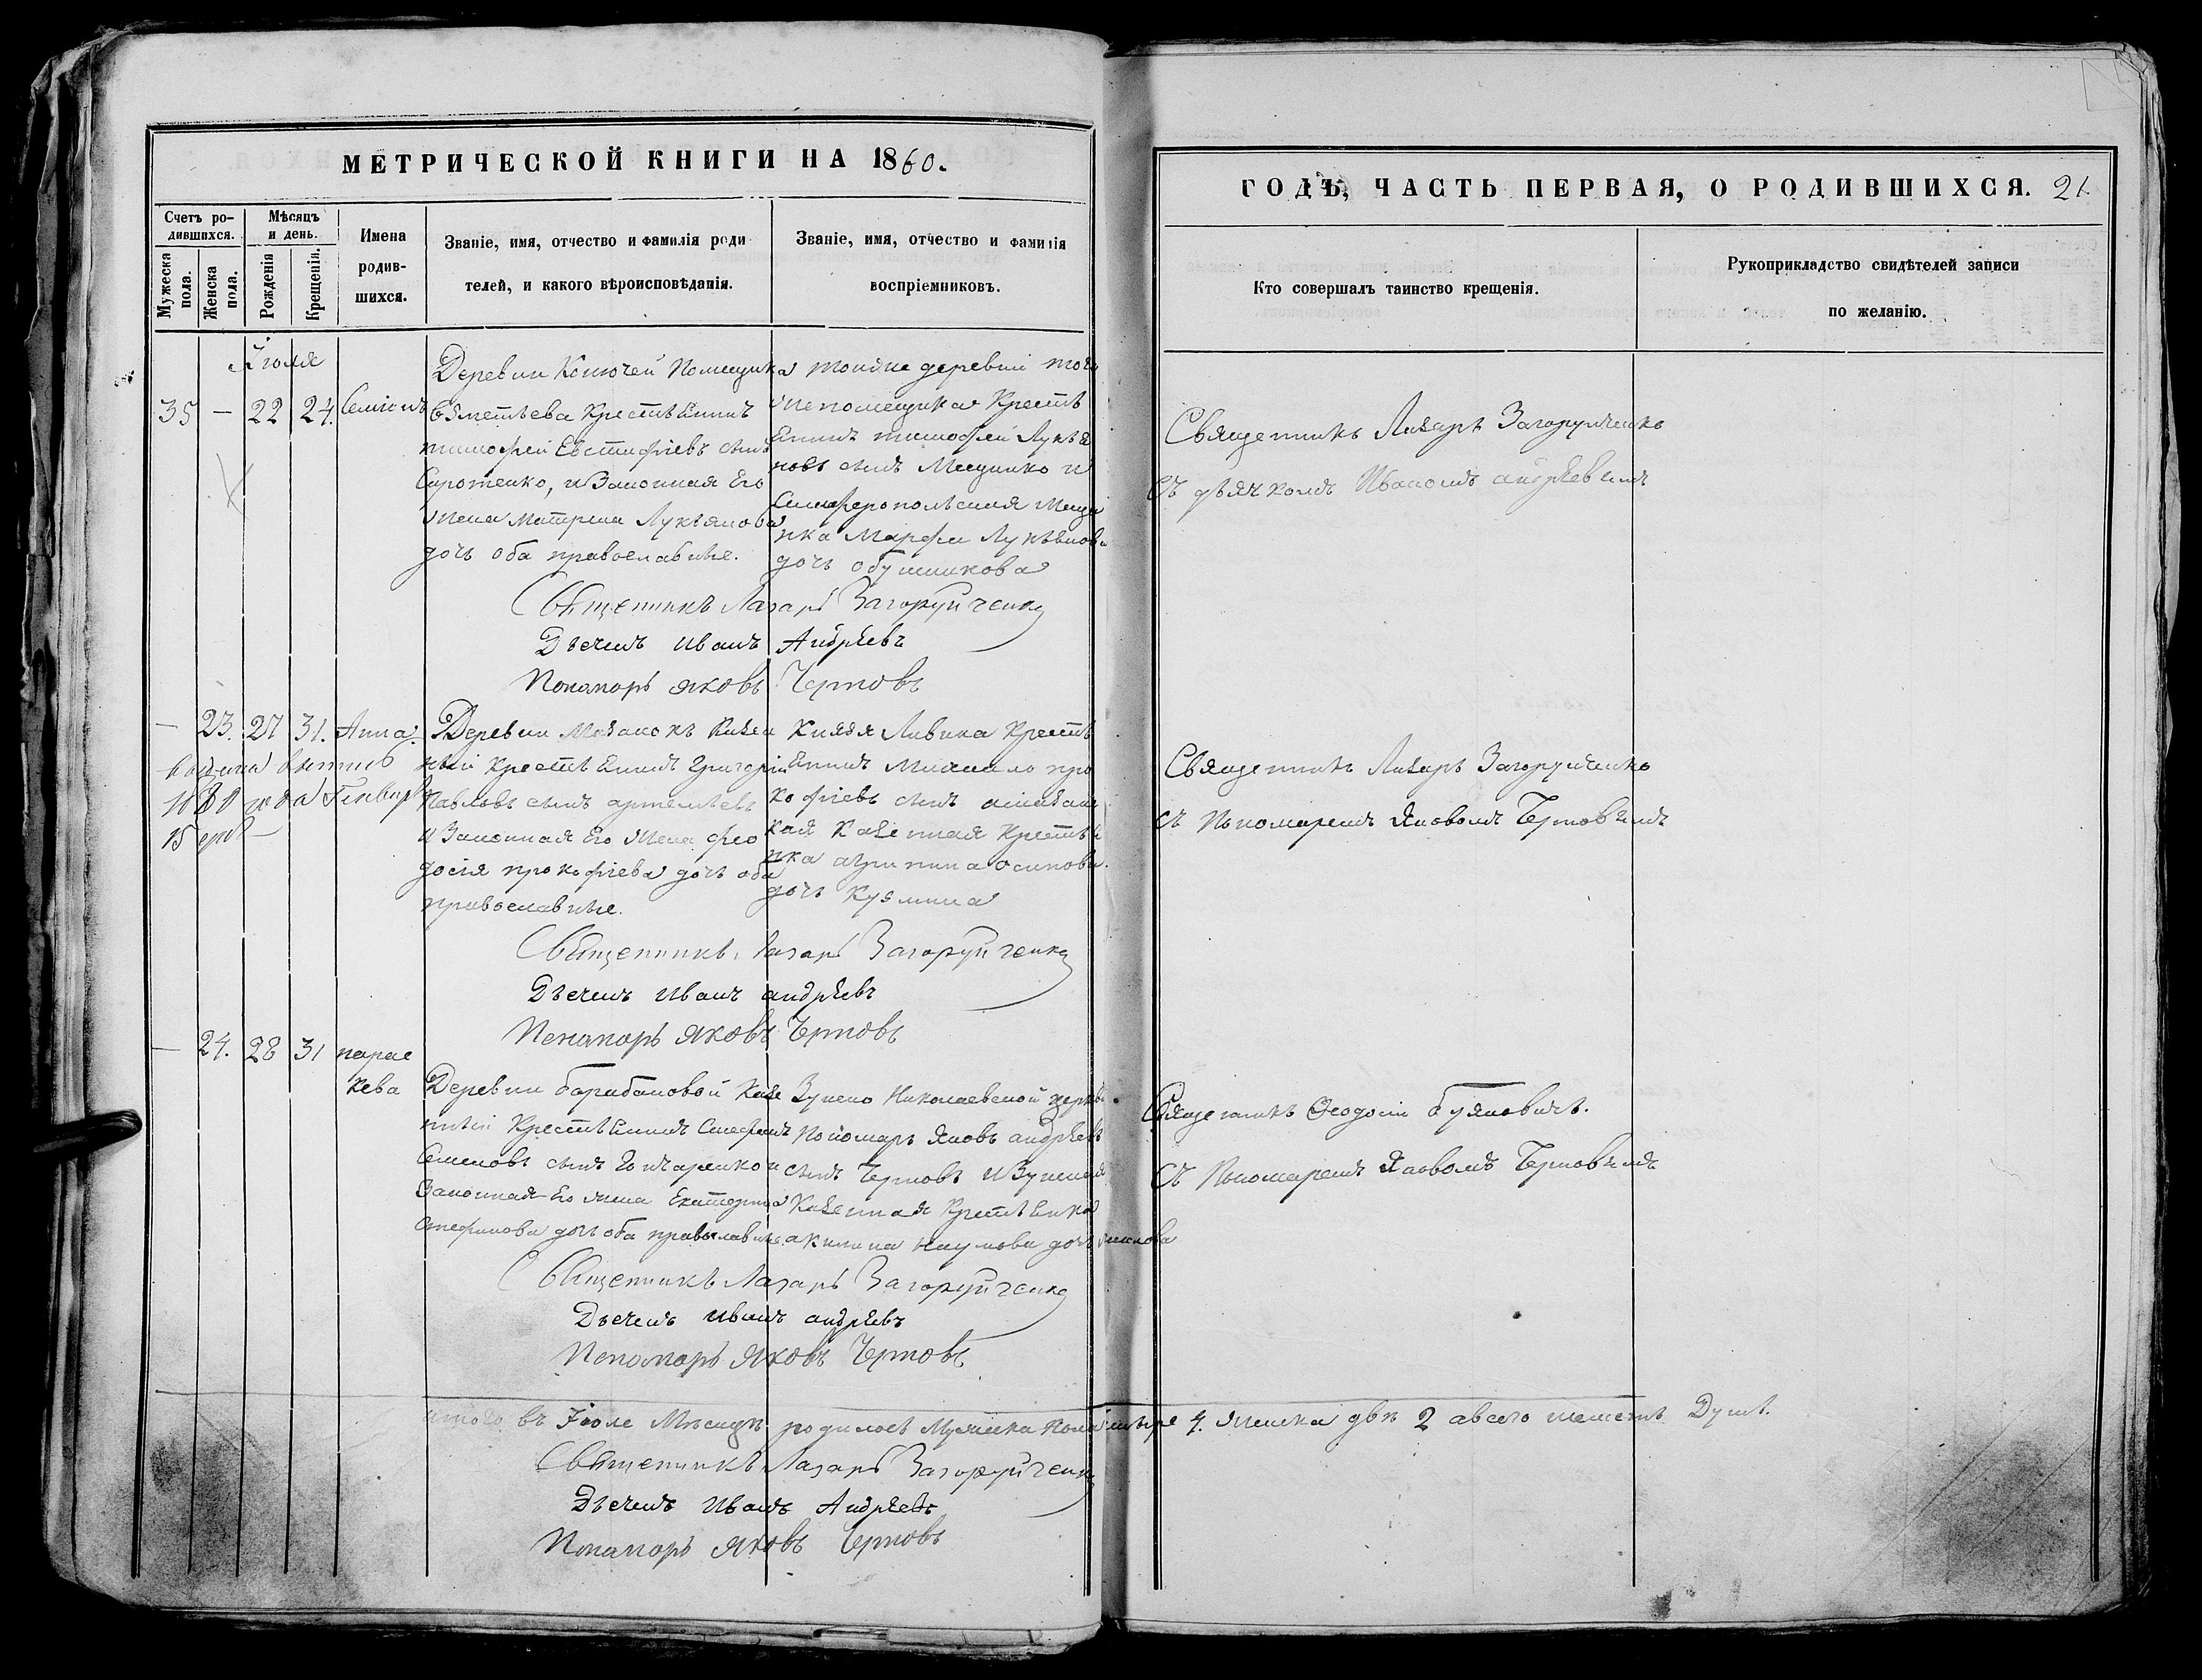 МЕТРИЧЕСКОЙ КНИГИ НА 1860.
Счетъ родившихся.
Мужеска пола.
Женска пола.
Мѣсяцъ и день.
Рожденія
Крещенія.
Имена родившихся.
Званіе, имя, отчество и фамилія родителей, и какого вѣроисповѣданія.
Званіе, имя, отчество и фамилія воспріемниковъ.
Іюля
35 — 22 24. Семіонъ
Деревни Помещика
Крестьянинъ
тимофей Евстифіевъ сынъ
Сиротенко, и Законная Его
жена Матрена Лукіянова
дочь оба православные.
тойже деревни того
же помещика Крестья
Енинъ тимофей Лукія
новъ сынъ Мищенко и
Симферопольская Меща
нка Марфа Лукіянова
дочь
Священникъ Лазарь Загоруйченко
Дьячекъ Иванъ Андрѣевъ
Пономарь Яковъ Чертовъ
— 23. 27 31. Анна.
выдана
15
Деревни Мазанокъ Казен
ный Крестьянинъ Григорій
Павловъ сынъ артемьевъ
и Законная Его жена фео
досія прокофіева дочь оба
православные.
Князя Крестья
Енинъ Михаило про
кофіевъ сынъ
кая Казенная Крестья
нка агрипина осипова
дочь Кузмина
Священникъ Лазарь Загоруйченко
Дьячекъ Иванъ андрѣевъ
Пономарь Яковъ Чертовъ
— 24. 28 31 парас
кева
Деревни барабановой Казе
нный Крестьянинъ Стефанъ
Семеновъ сынъ Гончаренко и
Законная Его жена Екатерина
Стефанова дочь оба православные
Зуйско Николаевской церкви
Пономарь Яковъ андрѣевъ
сынъ Чертовъ и Зуйская
Казенная Крестьянка
акилина Наумова дочь
Священникъ Лазарь Загоруйченко
Дьячекъ Иванъ андрѣевъ
Пономарь Яковъ Чертовъ
итого въ Іюле Месяцѣ родилось Мужеска пола четыре 4. женска двѣ 2 а всего шесть Душъ.
Священникъ Лазарь Загоруйченко
Дьячекъ Иванъ Андрѣевъ
Пономарь Яковъ Чертовъ
ГОДЪ, ЧАСТЬ ПЕРВАЯ, О РОДИВШИХСЯ. 21.
Кто совершалъ таинство крещенія.
Рукоприкладство свидѣтелей записи
по желанію.
Священникъ Лазарь Загоруйченко
Съ дьячкомъ Иваномъ андрѣевымъ
Священникъ Лазарь Загоруйченко
съ Пономаремъ Яковомъ Чертовымъ
Священникъ Феодосій буяновичъ.
Съ Пономаремъ Яковомъ Чертовымъ